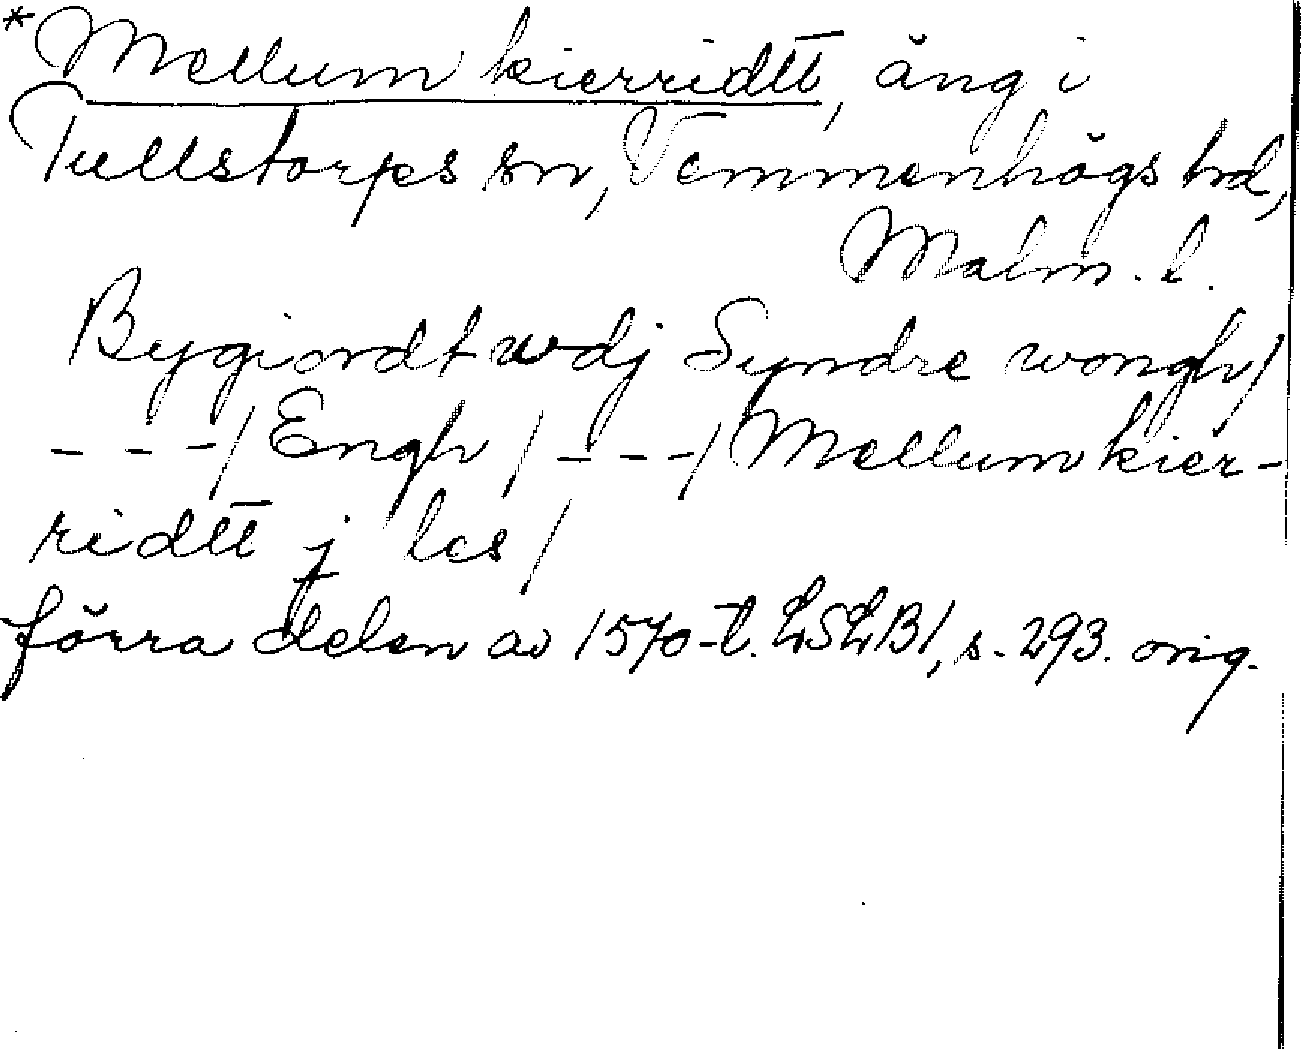 *Mellum kierridtt, äng i
Tullstorps sn, Vemmenhögs hd,
Malm. l.
Bygiordt wdj Syndre wongh/
- - -/ Engh / - - -/ Mellum kier-
ridtt j les /
förra delen av 1570-t. LSLB1, s. 293. orig.